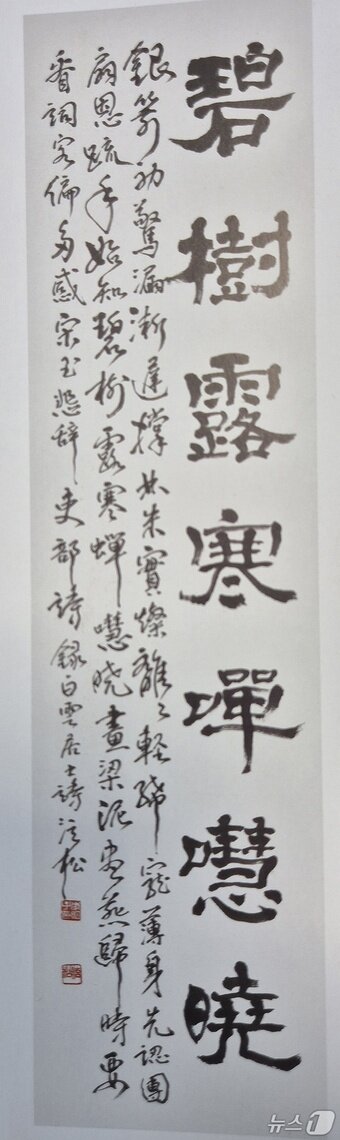 碧樹露寒蟬嚖曉
銀箭初驚漏漸遲撑林朱實燦離々輕絺寵薄身先認團
扇恩疏手始知碧樹露寒蟬嚖曉畫梁泥盡燕歸時要
看詞客偏多感宋玉悲辭吏部詩 錄白雲居士詩 松
뉴스1